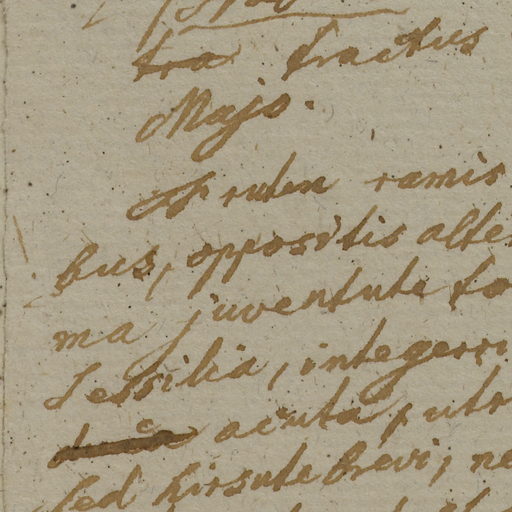 tra tractus
Majo.
ramis
bus, oppositis alte
ma juventute to
Sessilia, integerri
acuta, utr
sed hirsute brevi, ne